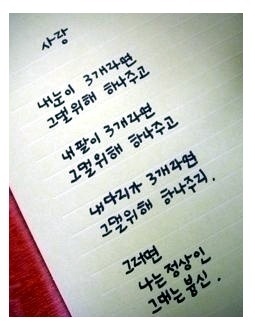 사랑
내눈이 3개라면
그댈위해 하나주고
내팔이 3개라면
그댈위해 하나주고
내다리가 3개라면
그댈위해 하나주리.
그러면
나는정상인
그대는붕신.